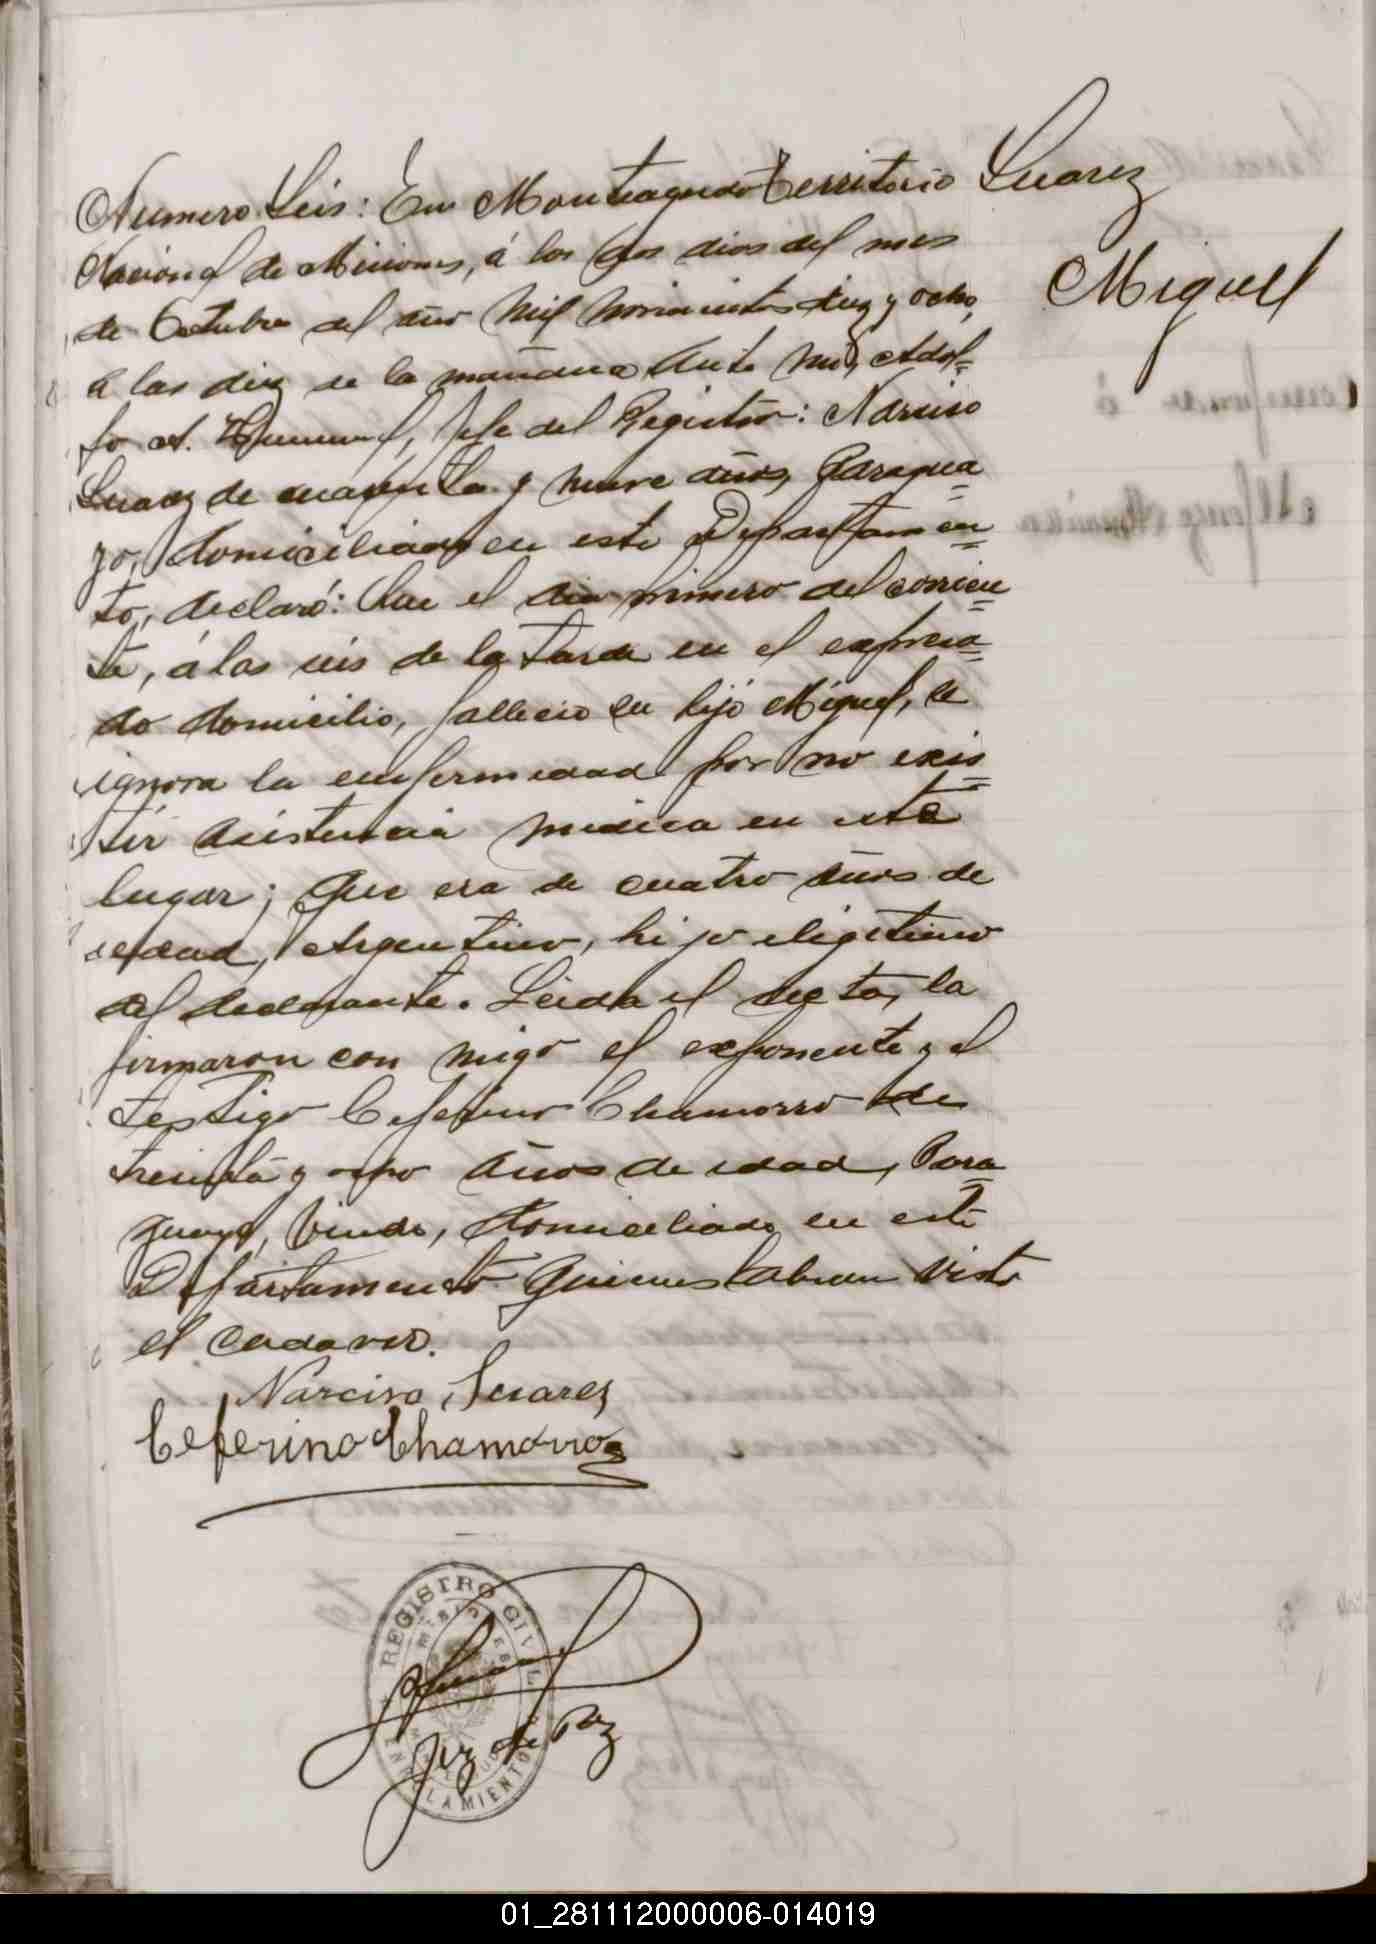 Numero Seis: En Monteagudo Territorio
Suarez
Miguel
Nacional de Misiones, á los dos dias del mes
de Octubre del año mil novecientos diez y ocho,
a las diez de la mañana ante mi, Adol-
fo A. Jefe del Registro: Narciso
Suarez de cuarenta y nueve años, Paragua=
yo, domiciliado en este Departamen=
to, declaró: Que el dia primero del corrien=
te, á las seis de la tarde en el expresa=
do domicilio, fallecio su hijo Miguel, se
ignora la enfermedad por no exis=
tir asistencia medica en este
lugar; que era de cuatro años de
edad, Argentino, hijo iligitimo
del declarante. Leida el acta, la
firmaron con migo el exponente y el
testigo Ceferino Chamorro de
treinta y ocho años de edad, Para=
guayo, viudo, domiciliado en este
Departamento quienes habian visto
el cadaver.
Narciso Suarez
Ceferino Chamorro
REGISTRO CIVIL
ENROLAMIENTO
Juez de Paz
01_281112000006-014019